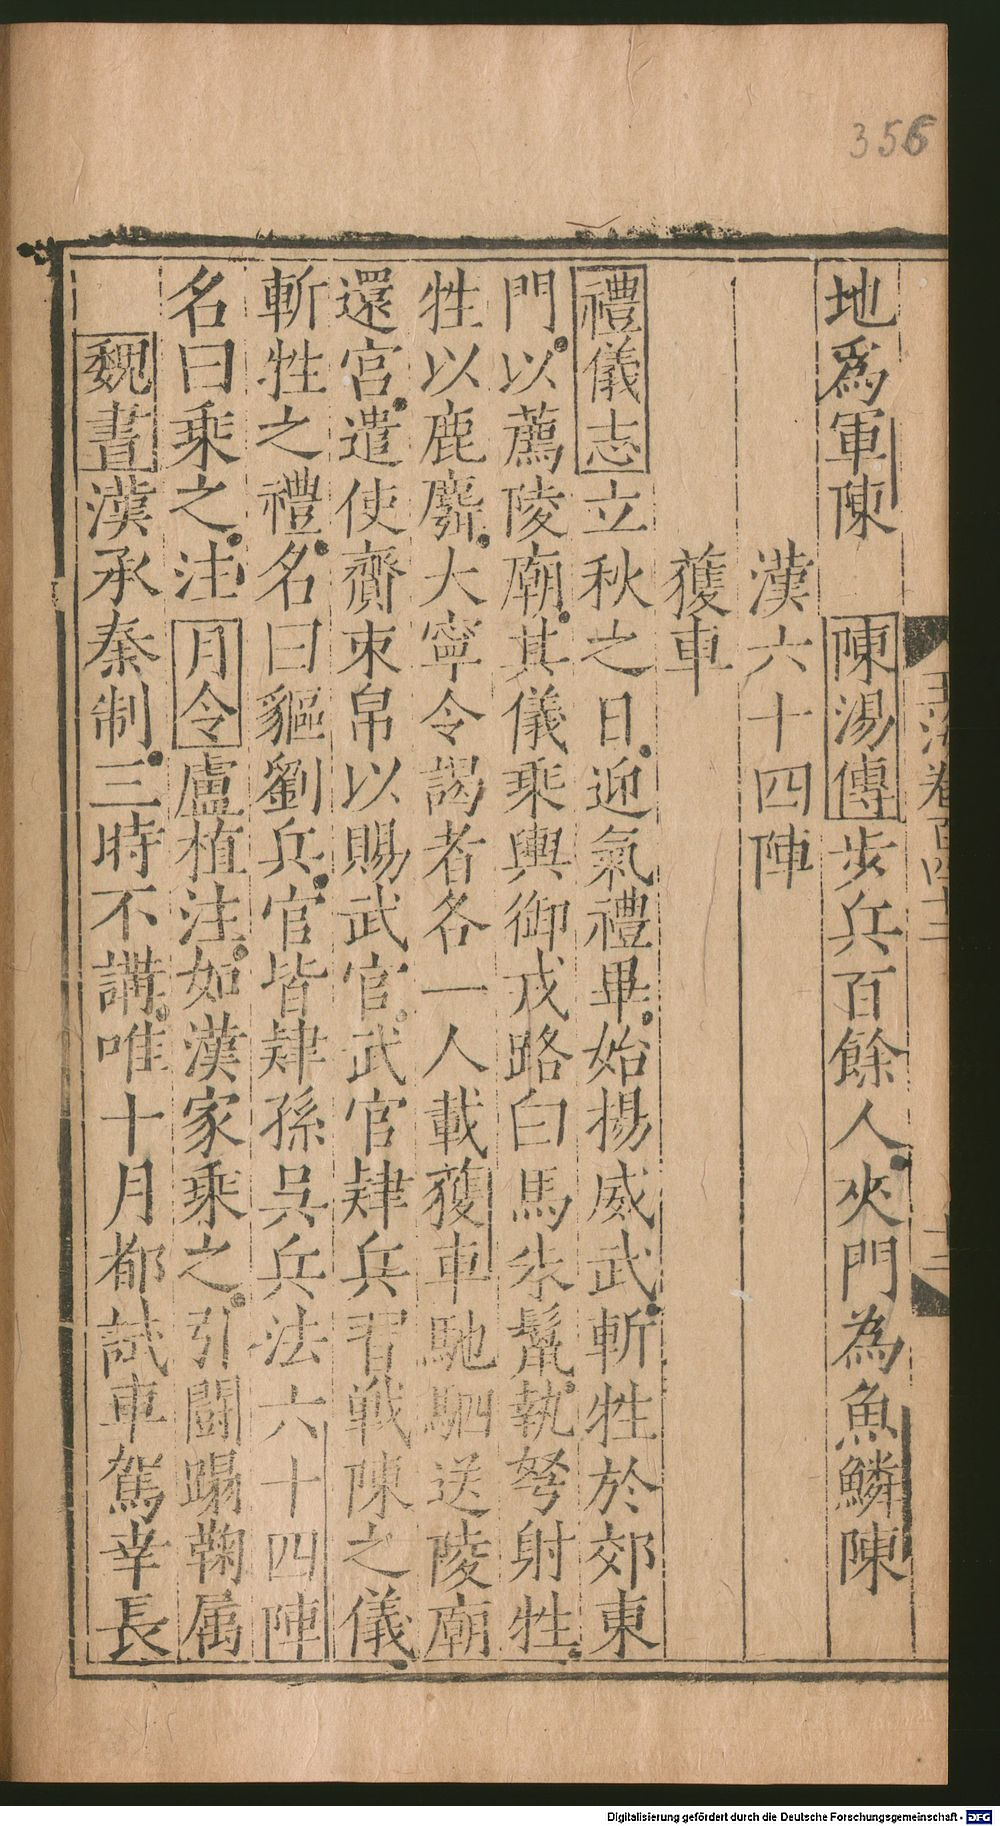 356
玉海卷百四十三
十三
地爲軍陳 陳湯傳步兵百餘人夾門為魚鱗陳
漢六十四陣
獲車
禮儀志立秋之日迎氣禮畢始揚威武斬牲於郊東
門以薦陵廟其儀乘輿御戎路白馬朱鬣執弩射牲
牲以鹿麛大宰令謁者各一人載獲車馳駟送陵廟
還宮遣使齎束帛以賜武官武官肄兵習戰陳之儀
斬牲之禮名曰貙劉兵官皆肄孫吳兵法六十四陣
名曰乘之注月令盧植注如漢家乘之引闘蹋鞠属
魏書漢承秦制三時不講唯十月都試車駕幸長
Digitalisierung gefördert durch die Deutsche Forschungsgemeinschaft - DFG